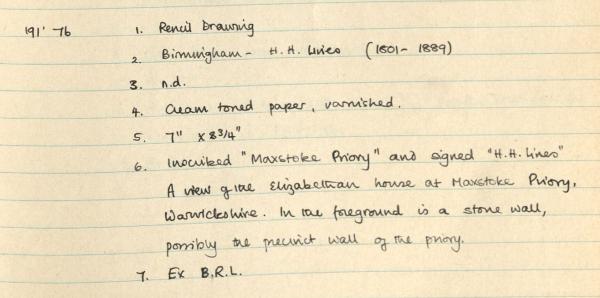 191' 76 1. Pencil Drawing
2. Birmingham - H.H. Lines (1801-1889)
3. n.d.
4. Cream toned paper, varnished.
5. 7" x 8 3/4"
6. Inscribed "Maxstoke Priory" and signed "H.H. Lines"
A view of the Elizabethan house at Maxstoke Priory,
Warwickshire. In the foreground is a stone wall,
possibly the precinct wall of the priory.
7. Ex B.R.L.